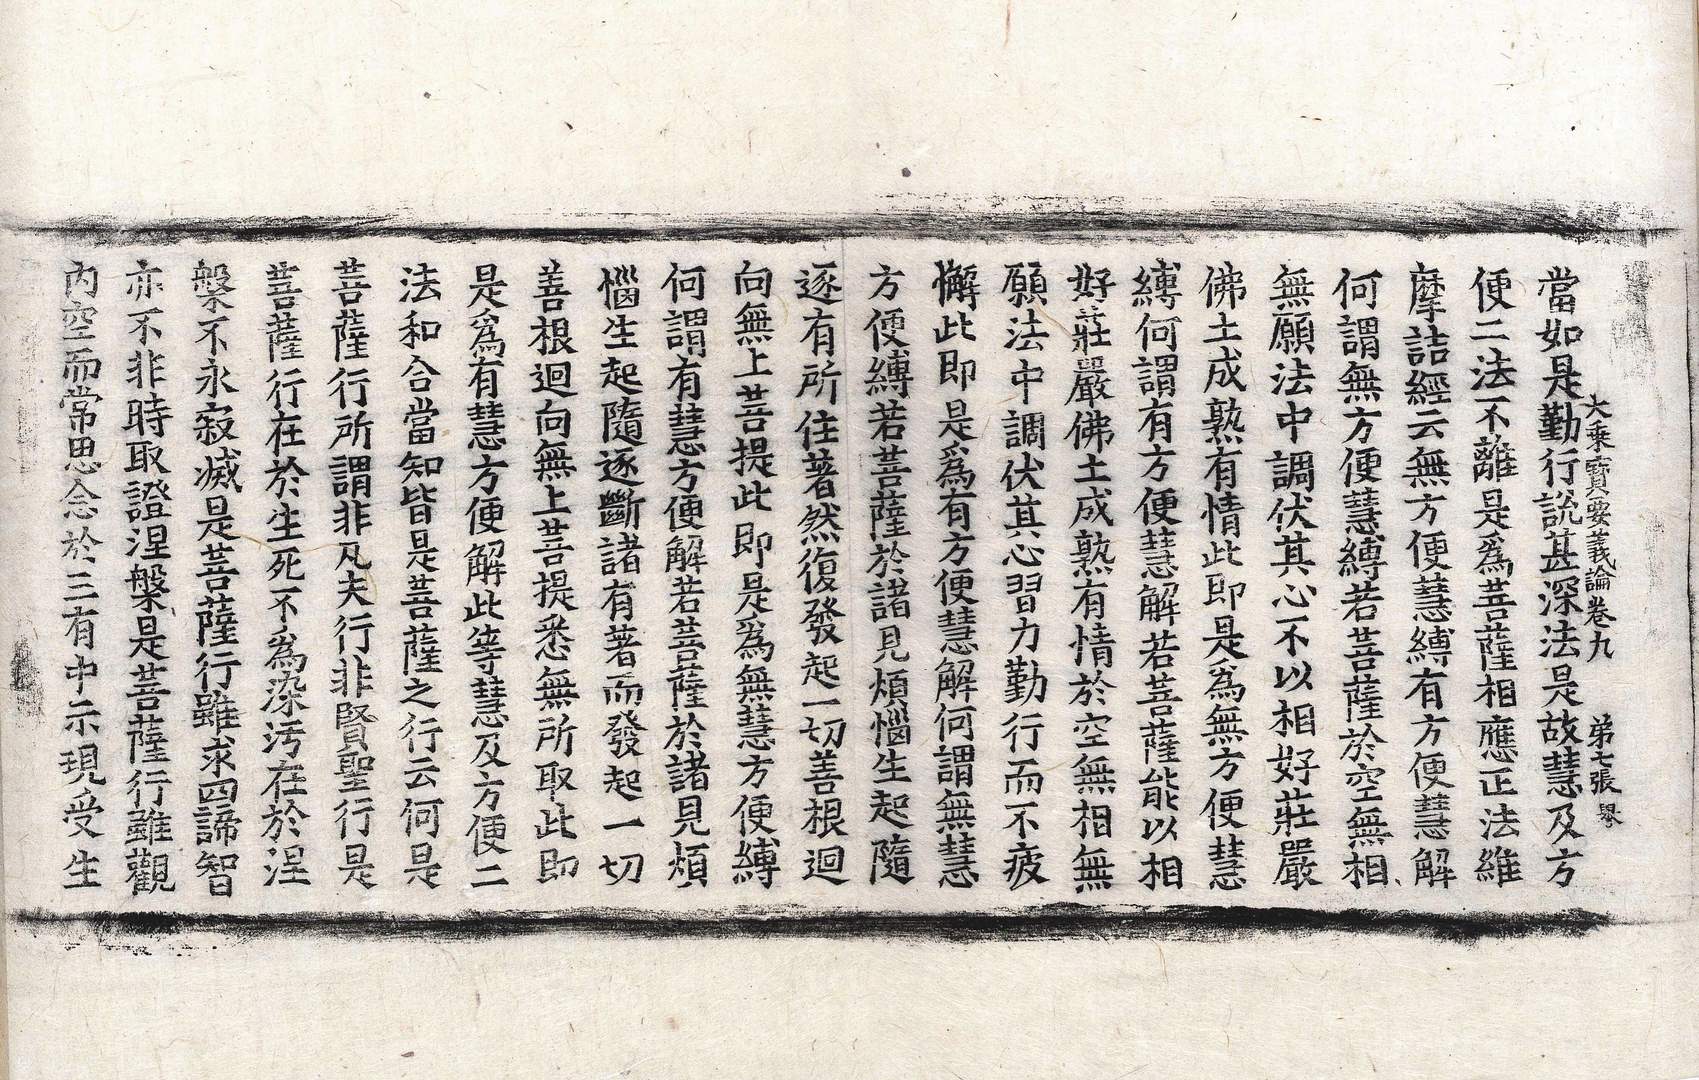 大乘寶要義論卷九 第七張 㓒
當如是勤行說甚深法是故慧及方
便二法不離是爲菩薩相應正法維
摩詰經云無方便慧縛有方便慧解
何謂無方便慧縛若菩薩於空無相
無願法中調伏其心不以相好莊嚴
佛土成熟有情此即是爲無方便慧
縛何謂有方便慧解若菩薩能以相
好莊嚴佛土成熟有情於空無相無
願法中調伏其心習力勤行而不疲
懈此即是爲有方便慧解何謂無慧
方便縛若菩薩於諸見煩惱生起隨
逐有所住著然復發起一切善根迴
向無上菩提此即是爲無慧方便縛
何謂有慧方便解若菩薩於諸見煩
惱生起隨逐斷諸有著而發起一切
善根迴向無上菩提悉無所取此即
是爲有慧方便解此等慧及方便二
法和合當知皆是菩薩之行云何是
菩薩行所謂非凡夫行非賢聖行是
菩薩行在於生死不爲染污在於涅
槃不永寂滅是菩薩行雖求四諦智
亦不非時取證涅槃是菩薩行雖觀
內空而常思念於三有中示現受生